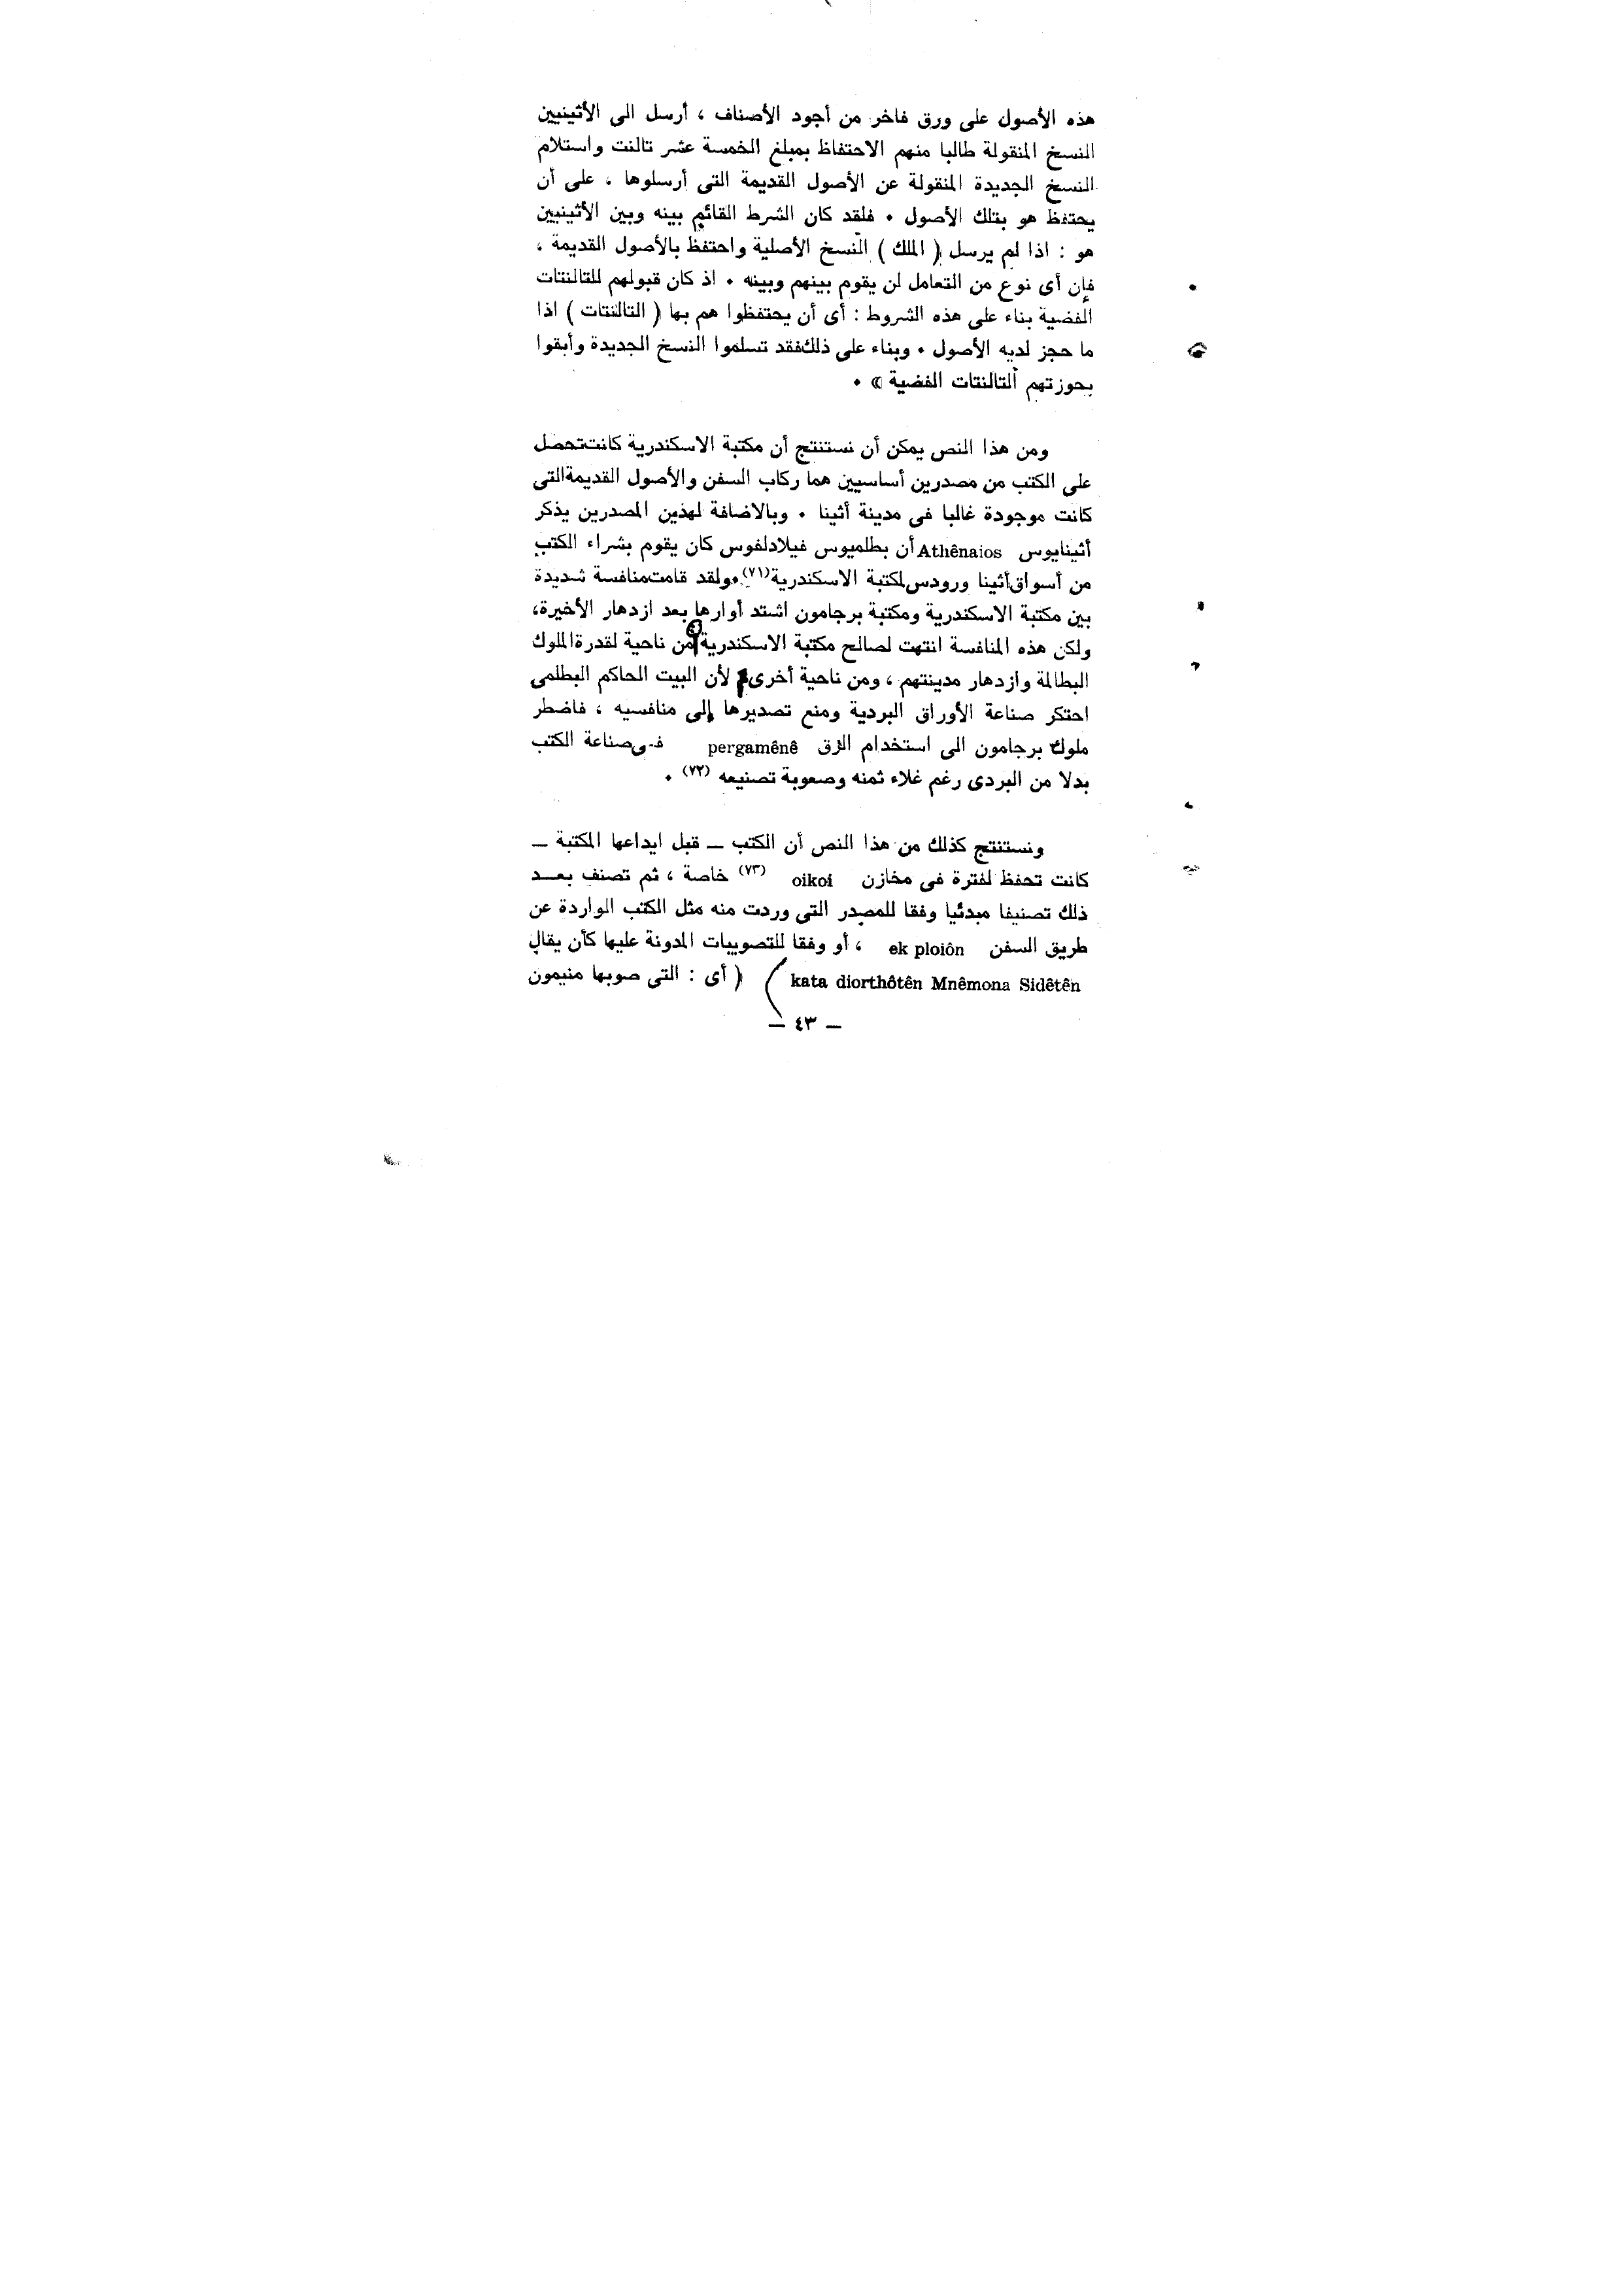 هذه الأصول على ورق فاخر من أجود الأصناف ، أرسل الى الأثينيين
النسخ المنقولة طالبا منهم الاحتفاظ بمبلغ الخمسة عشر تالنت واستلام
النسخ الجديدة المنقولة عن الأصول القديمة التى أرسلوها ، على أن
يحتفظ هو بتلك الأصول . فلقد كان الشرط القائم بينه وبين الأثينيين
هو : اذا لم يرسل ( الملك ) النسخ الأصلية واحتفظ بالأصول القديمة ،
فإن أى نوع من التعامل لن يقوم بينهم وبينه . اذ كان قبولهم للتالنتات
الفضية بناء على هذه الشروط : أى أن يحتفظوا هم بها ( التالنتات ) اذا
ما حجز لديه الأصول . وبناء على ذلك فقد تسلموا النسخ الجديدة وأبقوا
بحوزتهم التالنتات الفضية » .
ومن هذا النص يمكن أن نستنتج أن مكتبة الاسكندرية كانت تحصل
على الكتب من مصدرين أساسيين هما ركاب السفن والأصول القديمة التى
كانت موجودة غالبا فى مدينة أثينا . وبالاضافة لهذين المصدرين يذكر
أثينايوس Athênaios أن بطلميوس فيلادلفوس كان يقوم بشراء الكتب
من أسواق أثينا ورودس لمكتبة الاسكندرية (٧١) . ولقد قامت منافسة شديدة
بين مكتبة الاسكندرية ومكتبة برجامون اشتد أوارها بعد ازدهار الأخيرة ،
ولكن هذه المنافسة انتهت لصالح مكتبة الاسكندرية من ناحية لقدرة الملوك
البطالمة وازدهار مدينتهم ، ومن ناحية أخرى لأن البيت الحاكم البطلمى
احتكر صناعة الأوراق البردية ومنع تصديرها إلى منافسيه ، فاضطر
ملوك برجامون الى استخدام الرق pergamênê فى صناعة الكتب
بدلا من البردى رغم غلاء ثمنه وصعوبة تصنيعه (٧٢) .
ونستنتج كذلك من هذا النص أن الكتب ــ قبل ايداعها المكتبة ــ
كانت تحفظ لفترة فى مخازن oikoi (٧٣) خاصة ، ثم تصنف بعــد
ذلك تصنيفا مبدئيا وفقا للمصدر التى وردت منه مثل الكتب الواردة عن
طريق السفن ek ploiôn ، أو وفقا للتصويبات المدونة عليها كأن يقال
kata diorthôtên Mnêmona Sidêtên ( أى : التى صوبها منيمون
— ٤٣ —